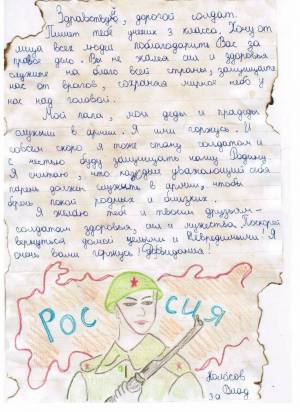 Здравствуй, дорогой солдат.
Пишет тебе ученик 3 класса. Хочу от
лица всех люди поблагодарить Вас за
правое дело. Вы не жалея сил и здоровья
служите на благо всей страны, защищаете
нас от врагов, сохраняя мирное небо у
нас над головой.
Мой папа, мои деды и прадеды
служили в армии. Я ими горжусь. И
совсем скоро я тоже стану солдатом и
с честью буду защищать нашу Родину
Я считаю, что каждый уважающий себя
парень должен служить в армии, чтобы
беречь покой родных и близких.
Я желаю тебе и твоим друзьям-
солдатам здоровья, сил и мужества. Поскорей
вернуться домой целыми и невредимыми! Я
очень вами горжусь! Досвидания!
РОССИЯ
Колосов
Влад
3а